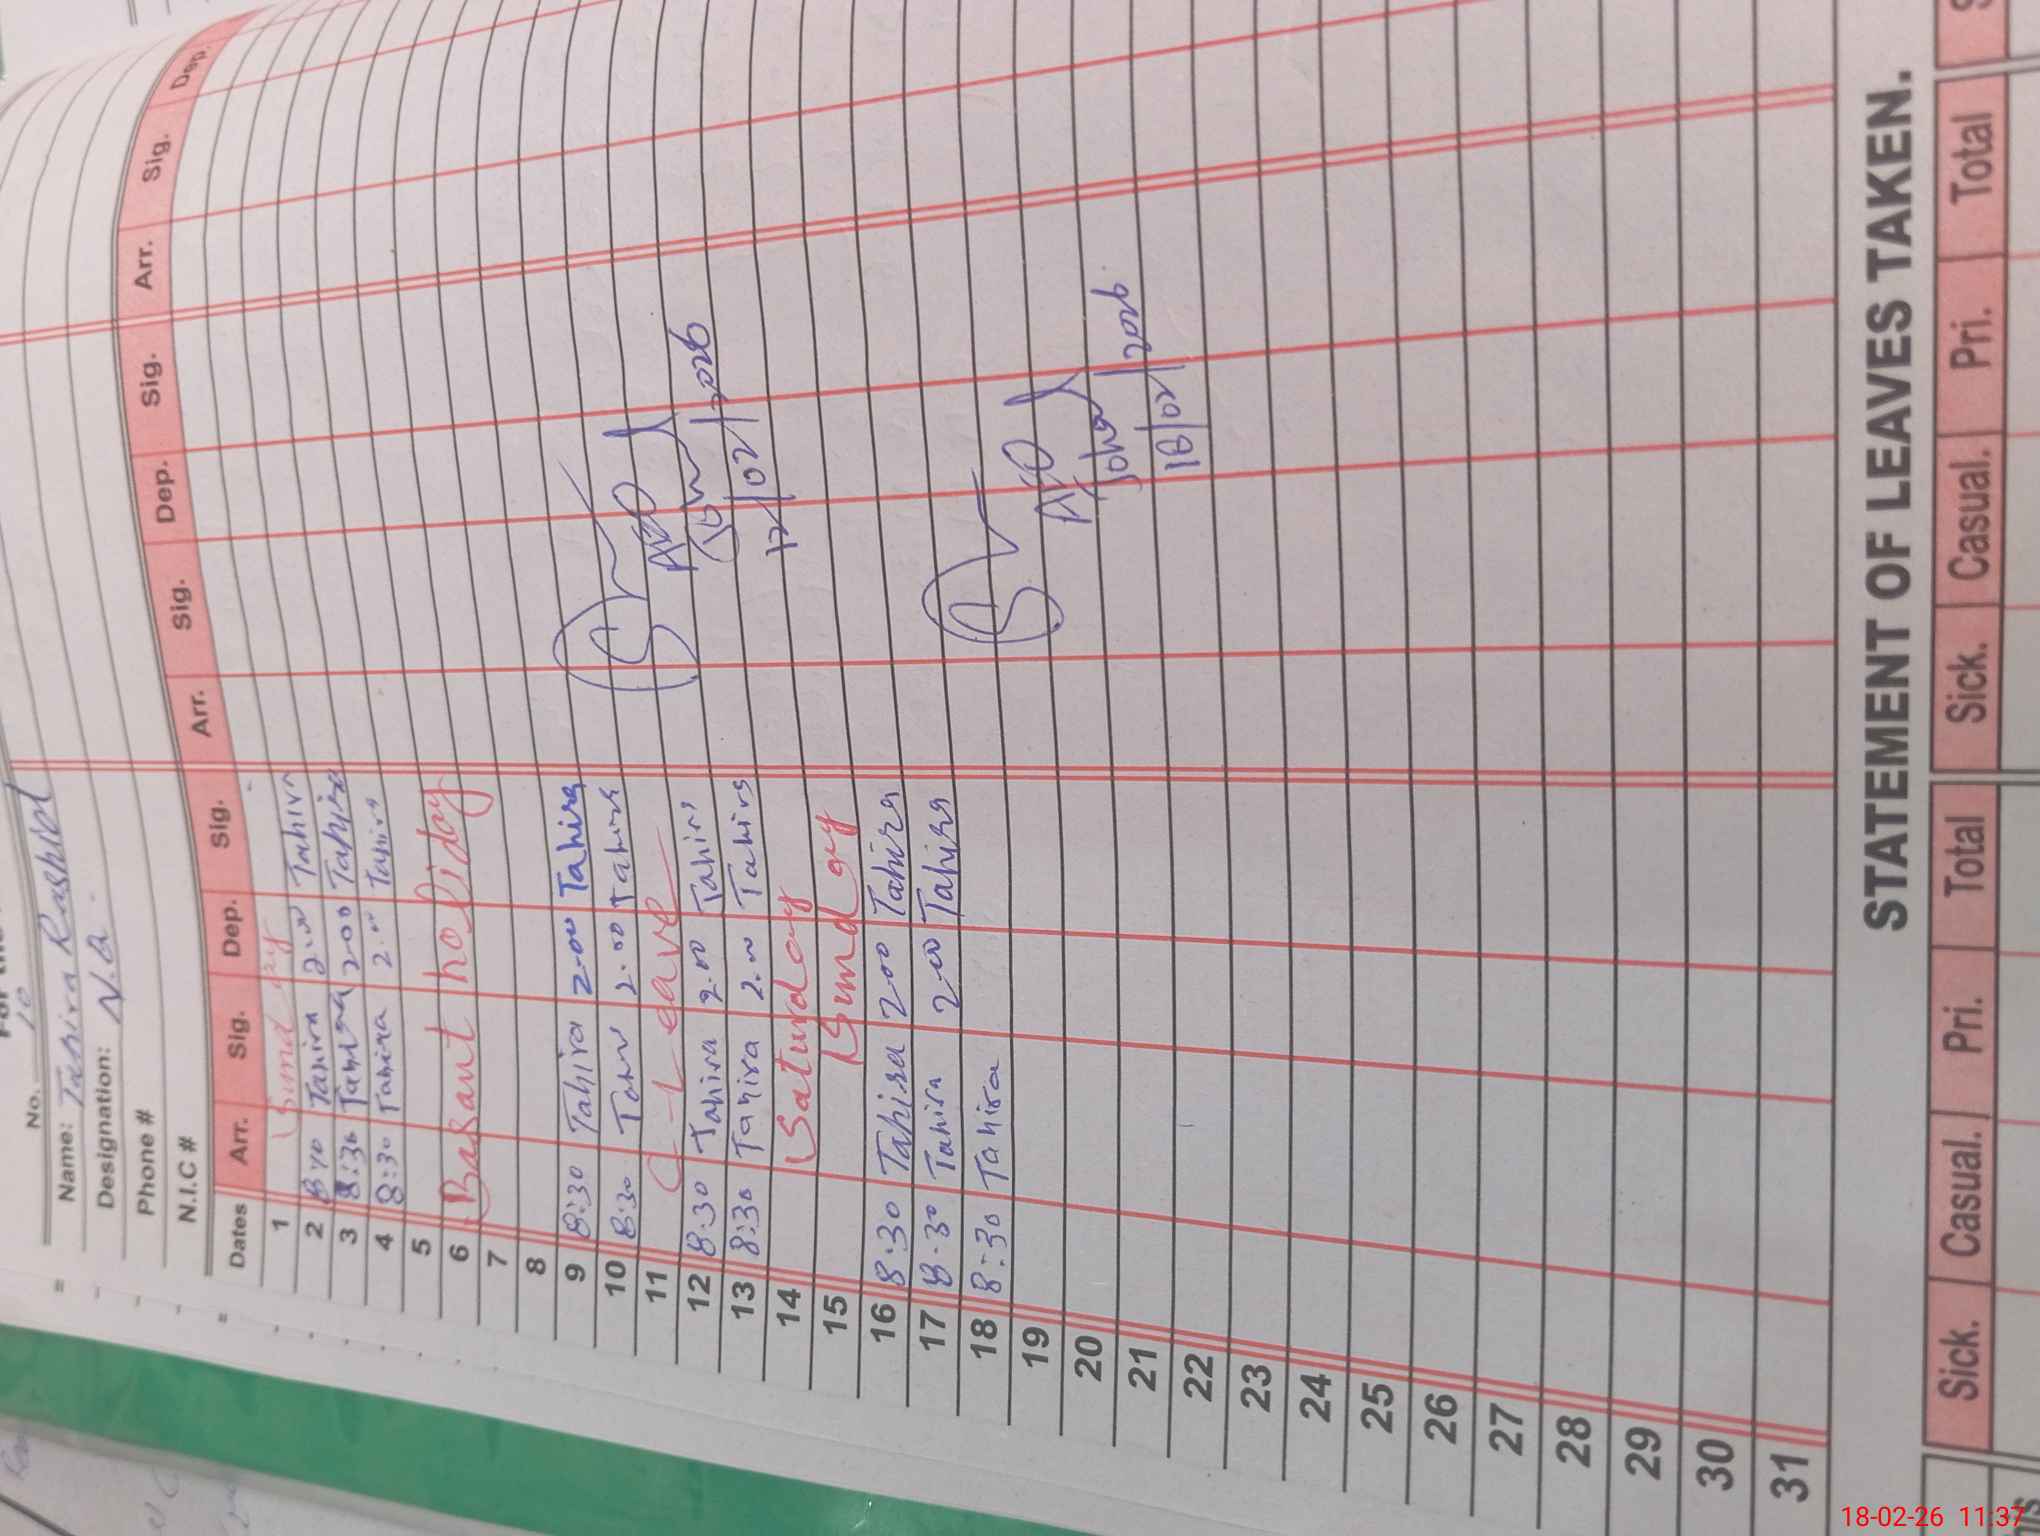 No. 10
Name: Tahira Rashid
Designation: N.Q.
Phone #
N.I.C #
Dates Arr. Sig. Dep. Sig. Arr. Sig. Dep. Sig. Arr. Sig. Dep.
1 Sunday
2 Tahira 2:00 Tahira
3 8:30 Tahira 2:00 Tahira
4 8:30 Tahira 2:00 Tahira
5
6 Basant holiday
7
8
9 8:30 Tahira 2:00 Tahira
10 8:30 Tahira 2:00 Tahira
11 C-Leave
12 8:30 Tahira 2:00 Tahira
13 8:30 Tahira 2:00 Tahira
12/02/2026
14 Saturday
15 Sunday
16 8:30 Tahira 2:00 Tahira
17 8:30 Tahira 2:00 Tahira
18 8:30 Tahira
19
20
21
18/02/2026
22
23
24
25
26
27
28
29
30
31
STATEMENT OF LEAVES TAKEN.
Sick. Casual. Pri. Total Sick. Casual. Pri. Total
18-02-26 11:37